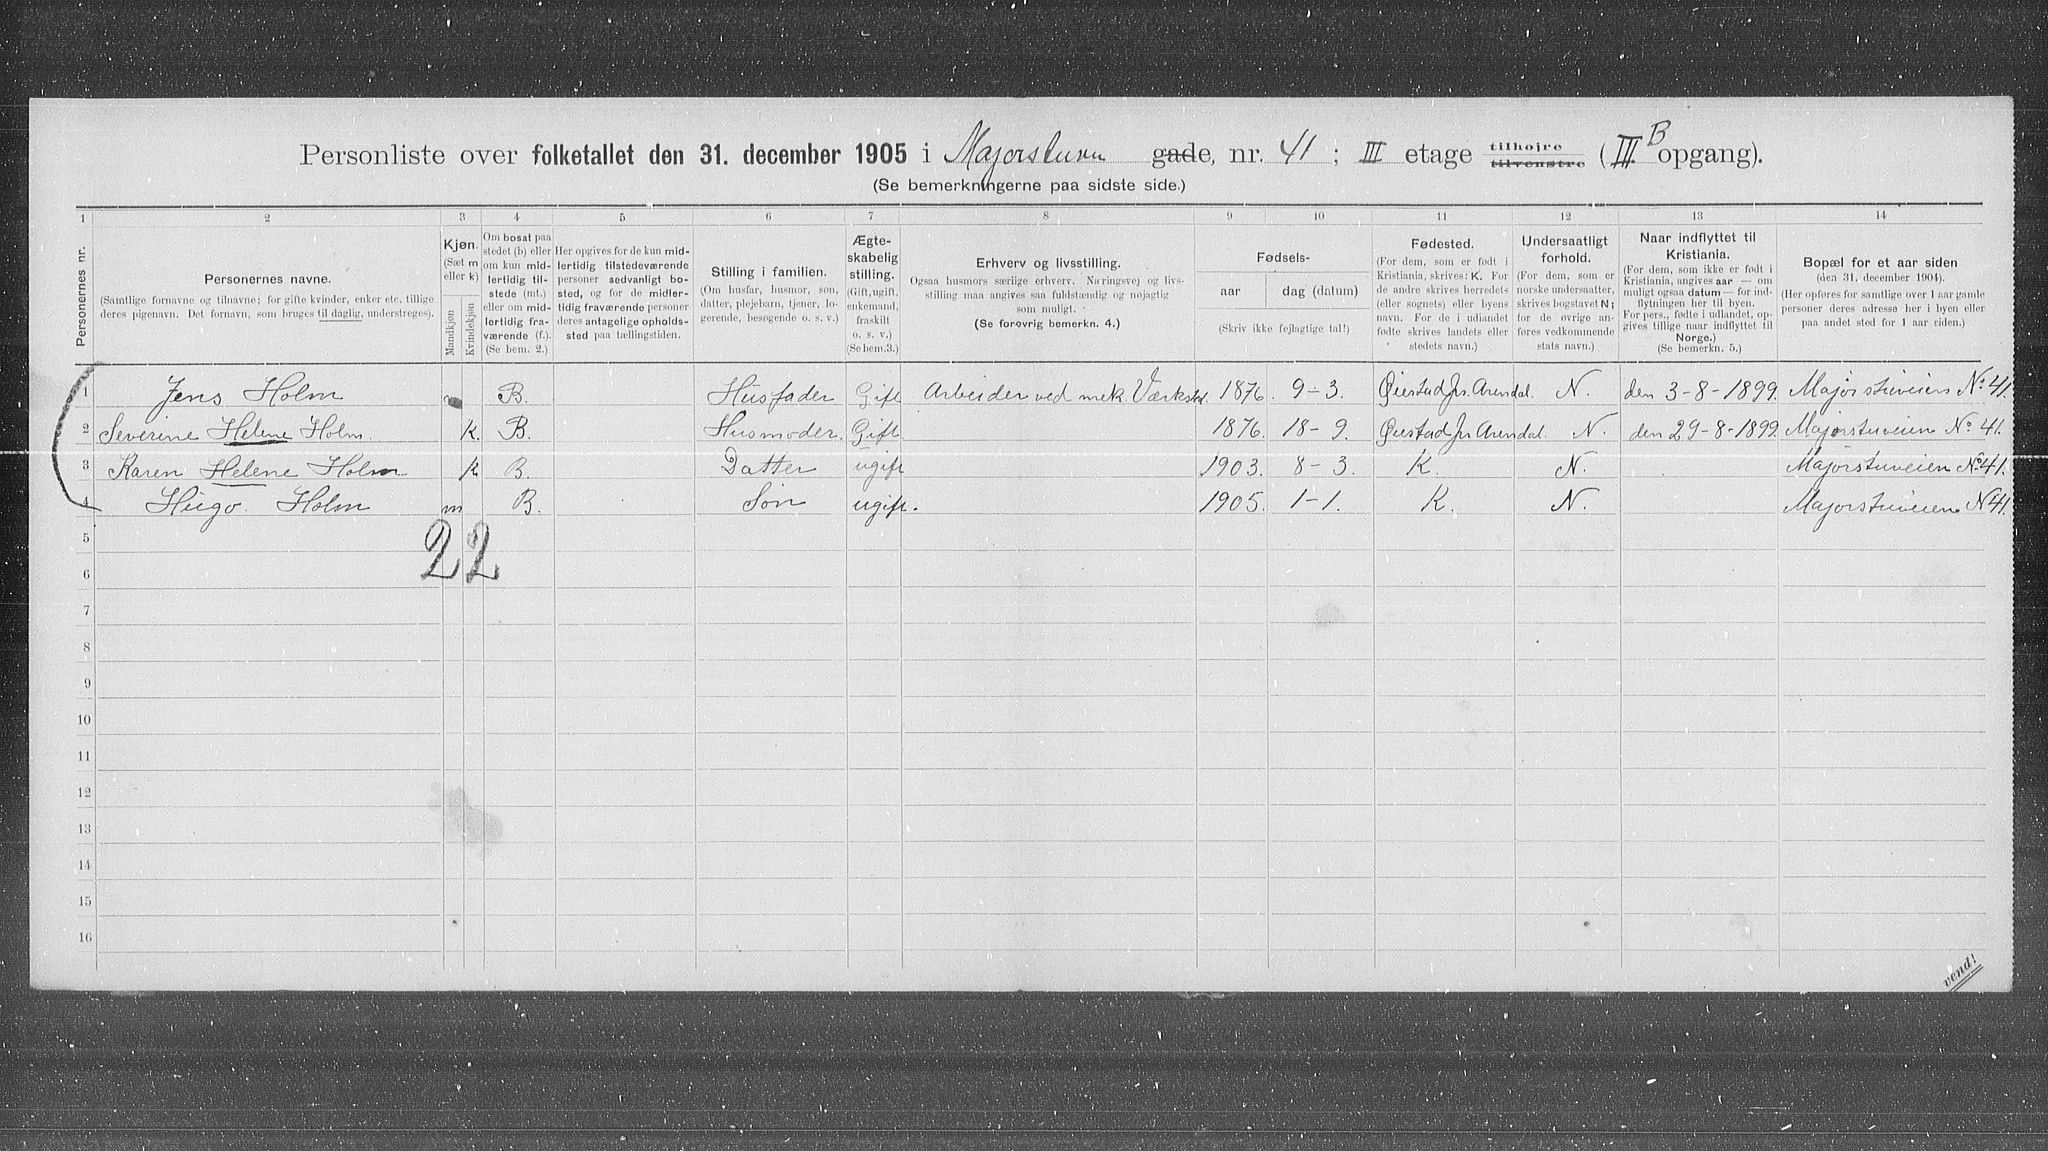 Personliste over folketallet den 31. december 1905 i Majorstuvn gade, nr. 41 ; III etage tilhøjre tilvenstre ( III. B opgang).
(Se bemerkningerne paa sidste side.)
1 2 3 4 5 6 7 8 9 10 11 12 13 14
Personernes nr.
Personernes navne.
(Samtlige fornavne og tilnavne; for gifte kvinder, enker etc. tillige
deres pigenavn. Det fornavn, som bruges til daglig, understreges).
Kjøn.
(Sæt m
eller k)
Mandkjøn
Kvindekjøn
Om bosat paa
stedet (b) eller
om kun mid-
lertidig til-
stede (mt.)
eller om mid-
lertidig fra-
værende (f.).
(Se bem. 2.)
Her opgives for de kun mid-
lertidig tilstedeværende
personer sedvanlig bo-
sted, og for de midler-
tidig fraværende personer
deres antagelige opholds-
sted paa tællingstiden.
Stilling i familien.
(Om husfar, husmor, søn,
datter, plejebarn, tjener, lo-
gerende, besøgende o. s. v.)
Ægte-
skabelig
stilling.
(Gift, ugift,
enkemand,
fraskilt
o. s. v.)
(Se bem.3.)
Erhverv og livsstilling.
Ogsaa husmors særlige erhverv. Næringsvej og livs-
stilling maa angives saa fuldstændig og nøjagtig
som muligt.
(Se forøvrig bemerkn. 4.)
Fødsels-
aar dag (datum)
(Skriv ikke fejlagtige tal!)
Fødested.
(For dem, som er født i
Kristiania, skrives: K. For
de andre skrives herredets
(eller sognets) eller byens
navn. For de i udlandet
fødte skrives landets eller
stedets navn.)
Undersaatligt
forhold.
(For dem, som er
norske undersaatter,
skrives bogstavet N;
for de øvrige an-
føres vedkommende
stats navn.)
Naar indflyttet til
Kristiania.
(For dem, som ikke er født i
Kristiania, angives aar — om
muligt ogsaa datum — for ind-
flytningen her til byen.
For pers., fødte i udlandet, op-
gives tillige naar indflyttet til
Norge.)
(Se bemerkn. 5.)
Bopæl for et aar siden
(den 31. december 1904).
(Her opføres for samtlige over 1 aar gamle
personer deres adresse her i byen eller
paa andet sted for 1 aar siden.)
1 Jens Holm m B. Husfader Gift Arbeider ved mek Værksted. 1876. 9-3. Øiestad pr. Arendal. N. den 3-8-1899. Majorstuveien No 41.
2 Severine Helene Holm. K. B. Husmoder. Gift 1876. 18-9. Øiestad pr Arendal. N. den 29-8-1899. Majorstuveien No 41.
3 Karen Helene Holm k B. Datter ugift 1903. 8-3. K. N. Majorstuveien No 41.
4 Hugo. Holm m B. Søn ugift. 1905. 1-1. K. N. Majorstuveien N 41.
22
5
6
7
8
9
10
11
12
13
14
15
16
vend!